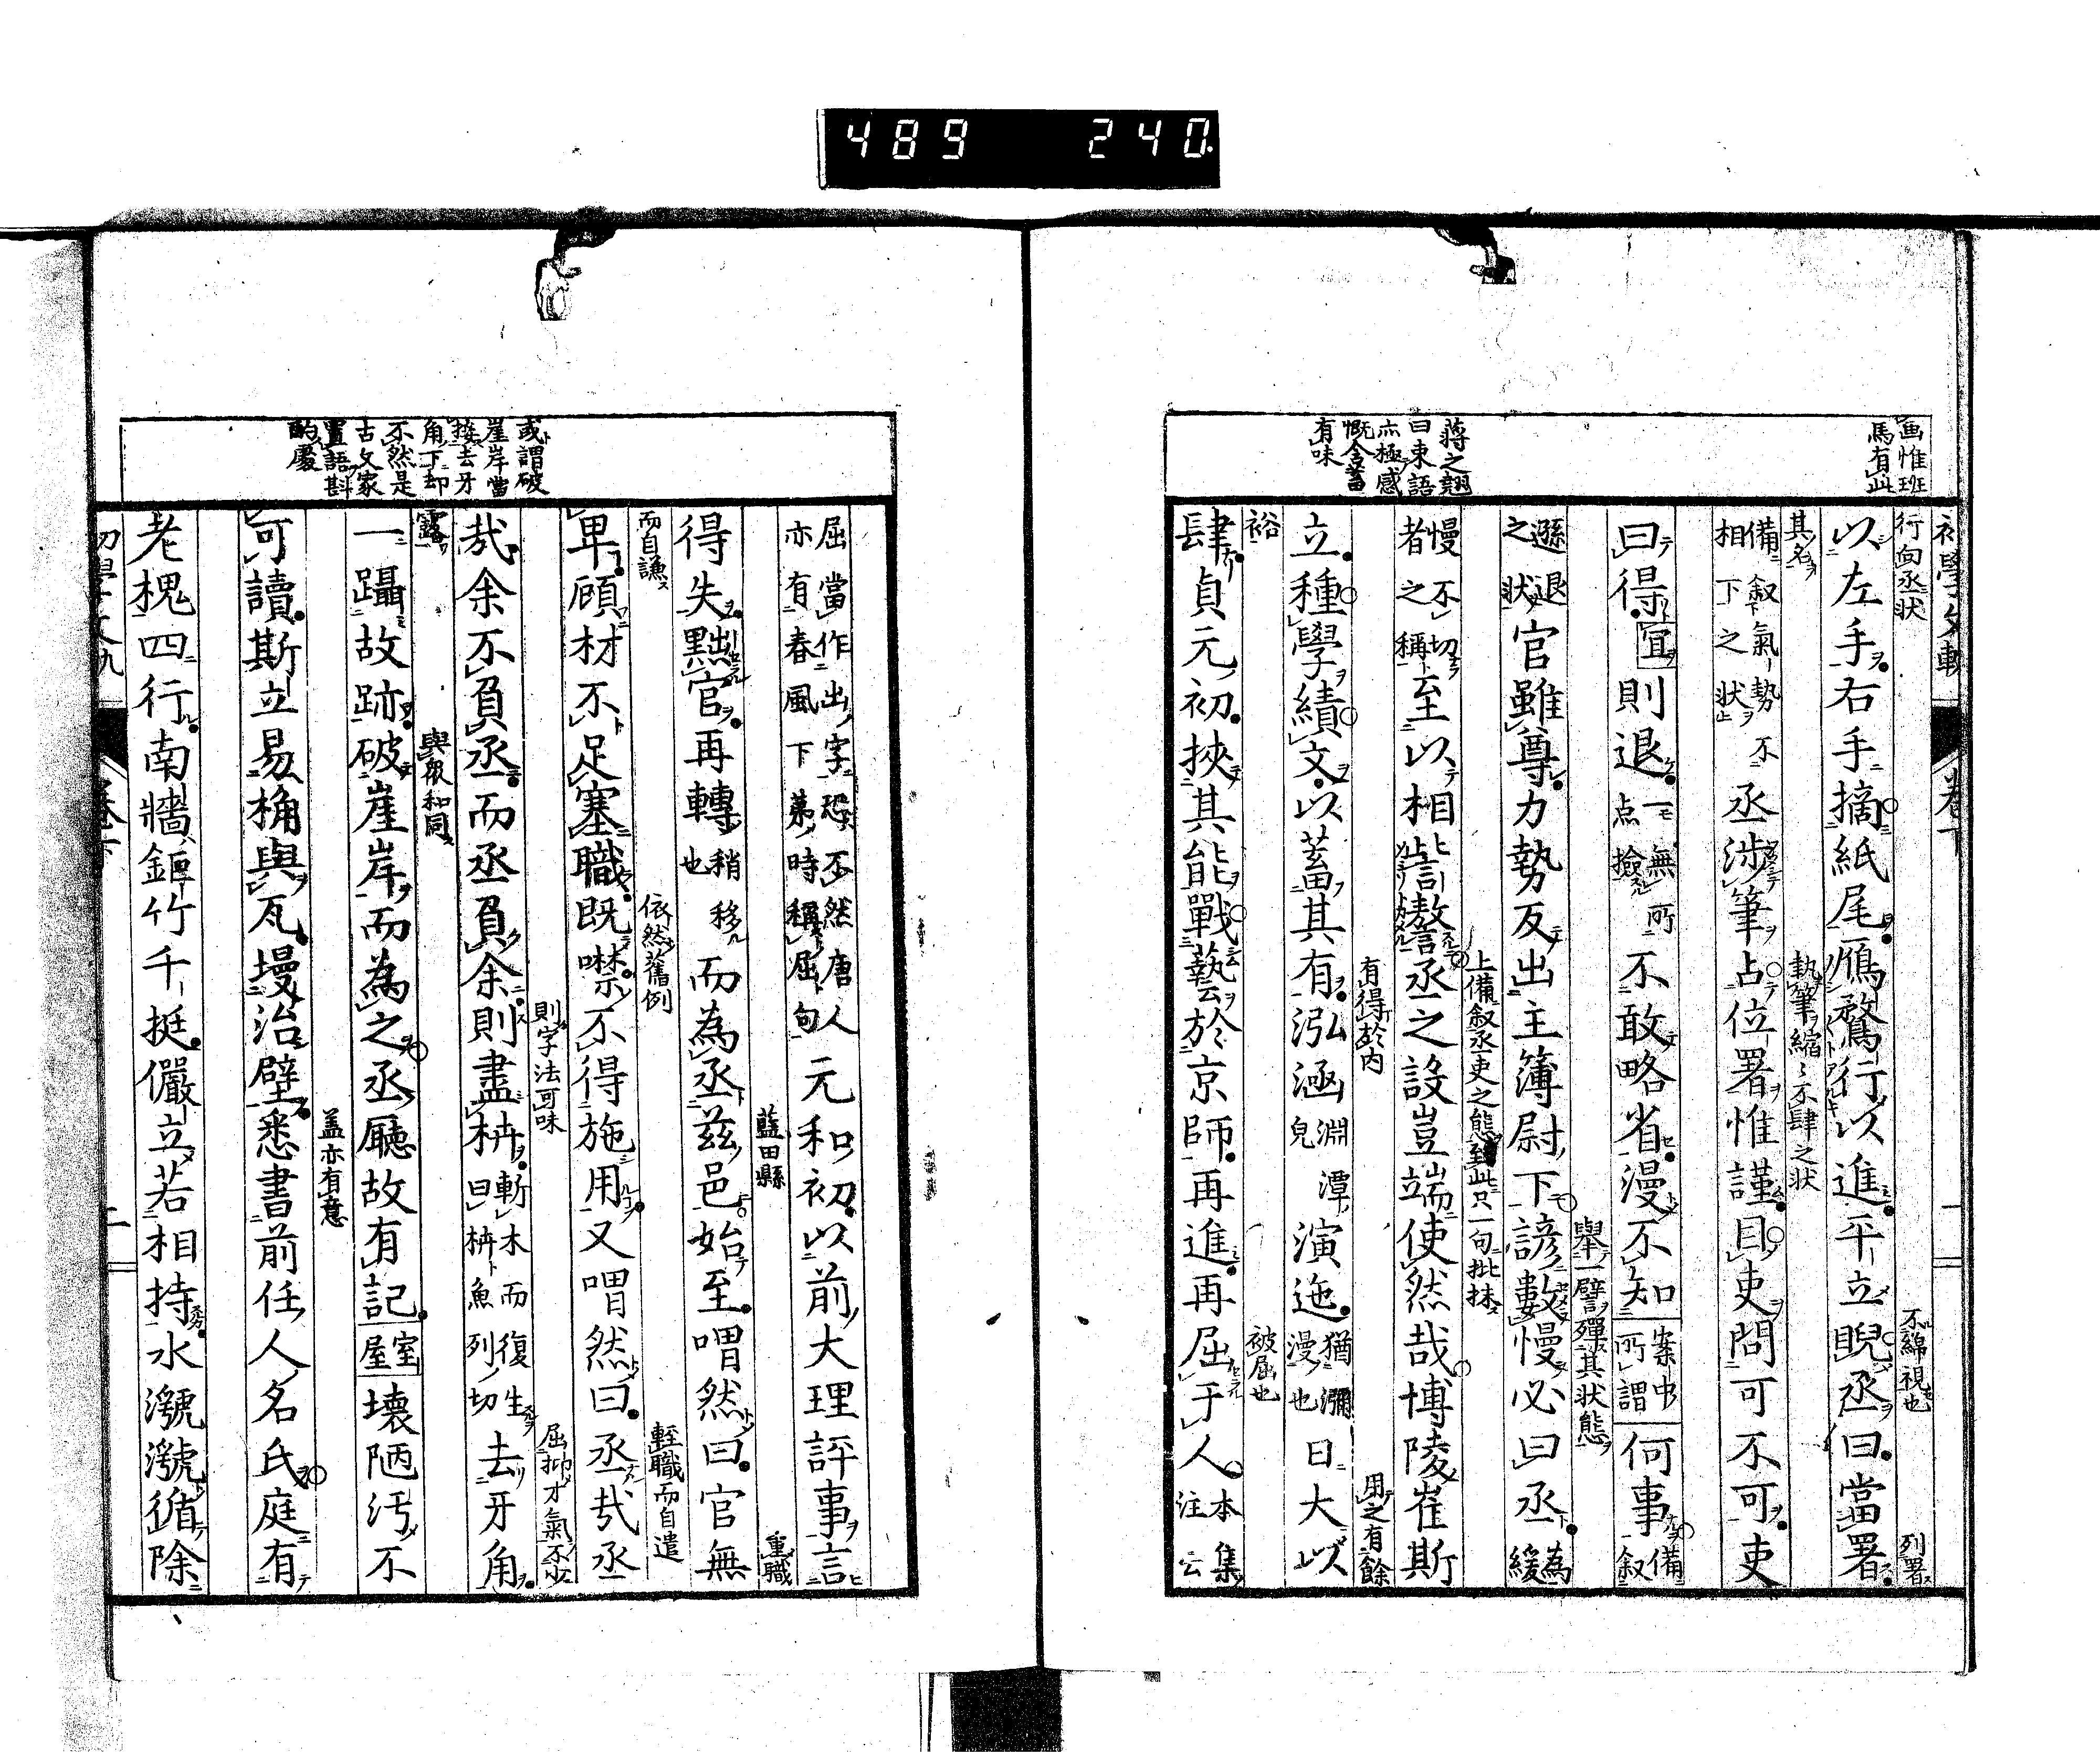 489 240
画惟班
馬有此
蒋之翹
曰束語
亦極感
慨含蓄
有味
初學文軌 卷下
行向丞状
不綿視也
列署
以左手右手摘紙尾鴈鶩行以進平立睨丞曰當署
其名
執筆縮〻不肆之状
備叙氣勢不相下之状 丞涉筆占位署惟謹目吏問可不可吏
曰得宜則退 一無所点撿 不敢略省漫不知 案中所謂 何事 備叙
舉一譬殫其状態
遜退之状 官雖尊力勢反出主簿尉下諺數慢必曰丞 為緩
上備叙丞吏之態到此只一句批抹
慢不切者之稱 至以相訾謷丞之設豈端使然哉博陵崔斯
有得於内
用之有餘
立種學績文以蓄其有泓涵 淵潭皃 演迤 猶瀰漫也 日大以
裕
被屈也
肆貞元初挾其能戰藝於京師再進再屈于人 本集注云
或謂破
崖岸當
接去牙
角下却
不然是
古文家
置語斟
酌處
屈當作出字恐不然唐人亦有春風下第時稱屈句 元和初以前大理評事言
藍田縣
重職
得失黜官再轉 稍移也 而為丞茲邑始至喟然曰官無
而自謙
依然舊例
輕職而自遣
卑顧材不足塞職既噤不得施用又喟然曰丞哉丞
則字法可味
屈抑才氣不少
哉余不負丞而丞負余則盡枿 斬木而復生曰枿魚列切 去牙角
露
與衆和同
一躡故跡破崖岸而為之丞廳故有記 室屋 壊陋汚不
盖亦有意
可讀斯立易桷與瓦墁治壁悉書前任人名氏庭有
老槐四行南墻鉅竹千挺儼立若相持水㶁㶁循除
初學文軌 卷下 二